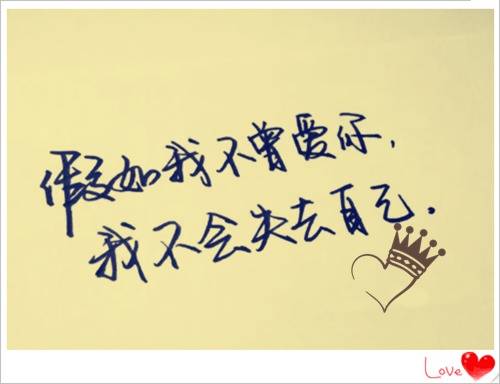 假如我不曾爱你,
我不会失去自己.
Love